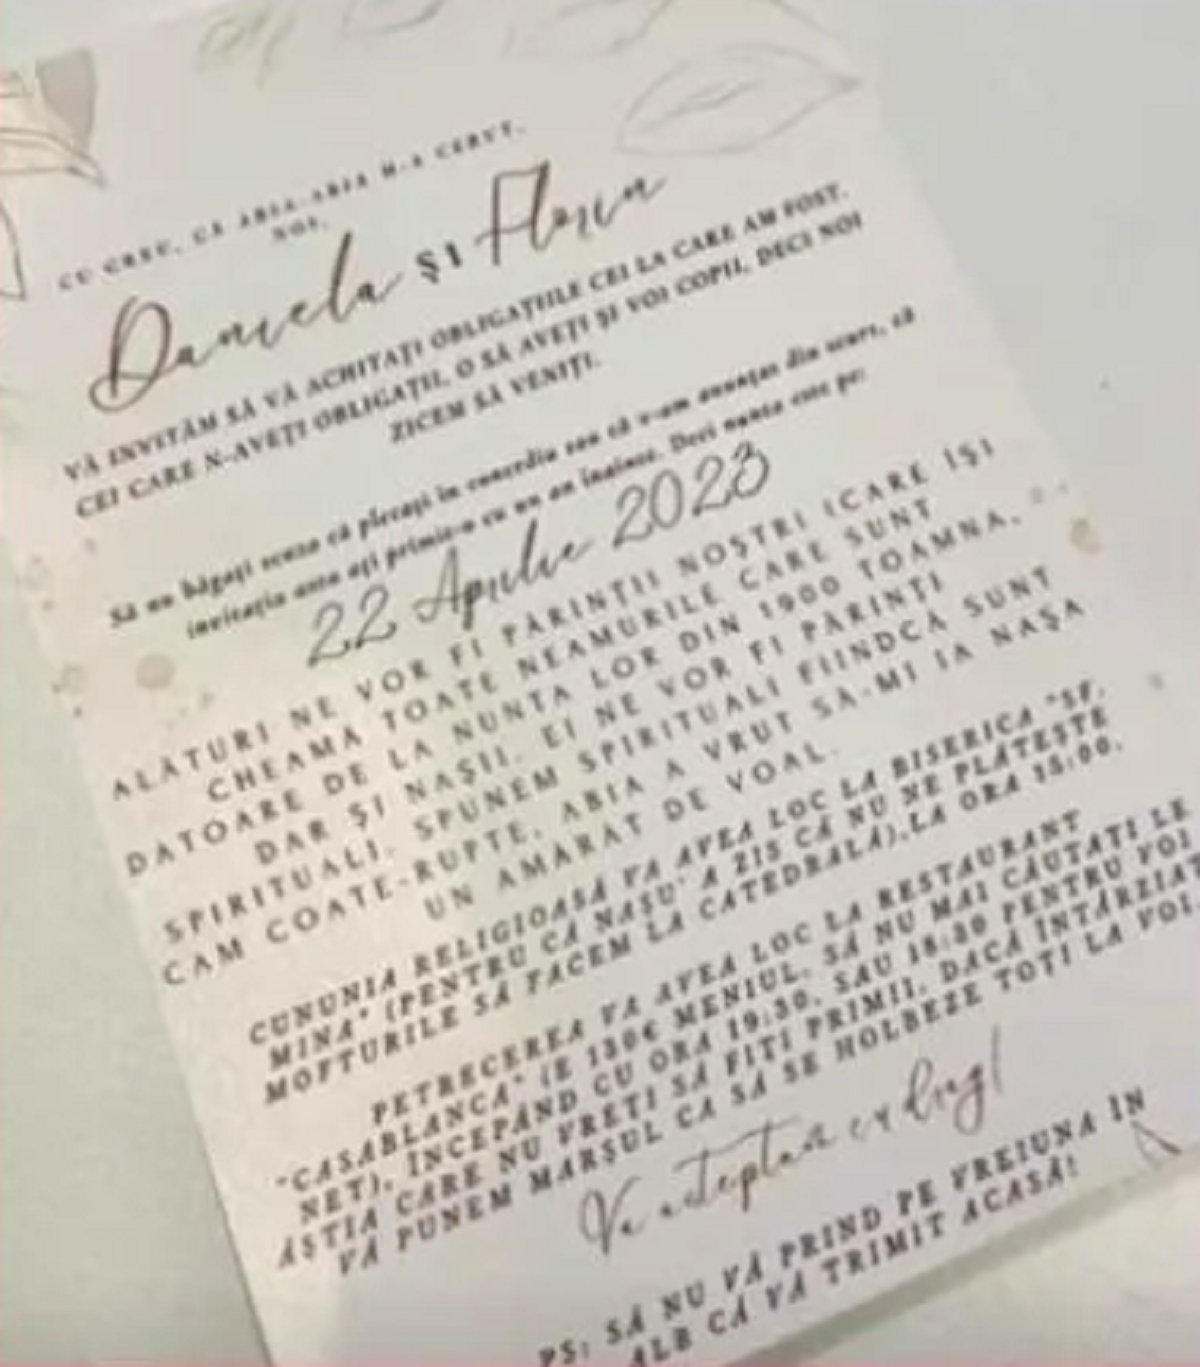 CU GREU, CĂ ABIA-ABIA M-A CERUT,
NOI,
Daniela ȘI Florin
VĂ INVITĂM SĂ VĂ ACHITAȚI OBLIGAȚIILE CEI LA CARE AM FOST.
CEI CARE N-AVEȚI OBLIGAȚII, O SĂ AVEȚI ȘI VOI COPII, DECI NOI
ZICEM SĂ VENIȚI.
Să nu băgați scuza că plecați în concediu sau că v-am anunțat din scurt, că
invitația asta ați primit-o cu un an înainte. Deci nunta este pe:
22 Aprilie 2023
ALĂTURI NE VOR FI PĂRINȚII NOȘTRI (CARE ÎȘI
CHEAMĂ TOATE NEAMURILE CARE SUNT
DATOARE DE LA NUNTA LOR DIN 1900 TOAMNA,
DAR ȘI NAȘII. EI NE VOR FI PĂRINȚI
SPIRITUALI. SPUNEM SPIRITUALI FIINDCĂ SUNT
CAM COATE-RUPTE, ABIA A VRUT SĂ-MI IA NAȘA
UN AMĂRÂT DE VOAL.
CUNUNIA RELIGIOASĂ VA AVEA LOC LA BISERICA "SF.
MINA" (PENTRU CĂ NAȘU' A ZIS CĂ NU NE PLĂTEȘTE
MOFTURILE SĂ FACEM LA CATEDRALĂ), LA ORA 15:00.
PETRECEREA VA AVEA LOC LA RESTAURANT
"CASABLANCA" (E 130€ MENIUL, SĂ NU MAI CĂUTAȚI LE
NET), ÎNCEPÂND CU ORA 19:30, SAU 18:30 PENTRU VOI
ĂȘTIA CARE NU VREȚI SĂ FIȚI PRIMII. DACĂ ÎNTÂRZIAȚ
VĂ PUNEM MARȘUL CA SĂ SE HOLBEZE TOȚI LA VOI.
Va așteptăm cu drag!
PS: SĂ NU VĂ PRIND PE VREIUNA ÎN
ALB CĂ VĂ TRIMIT ACASĂ!